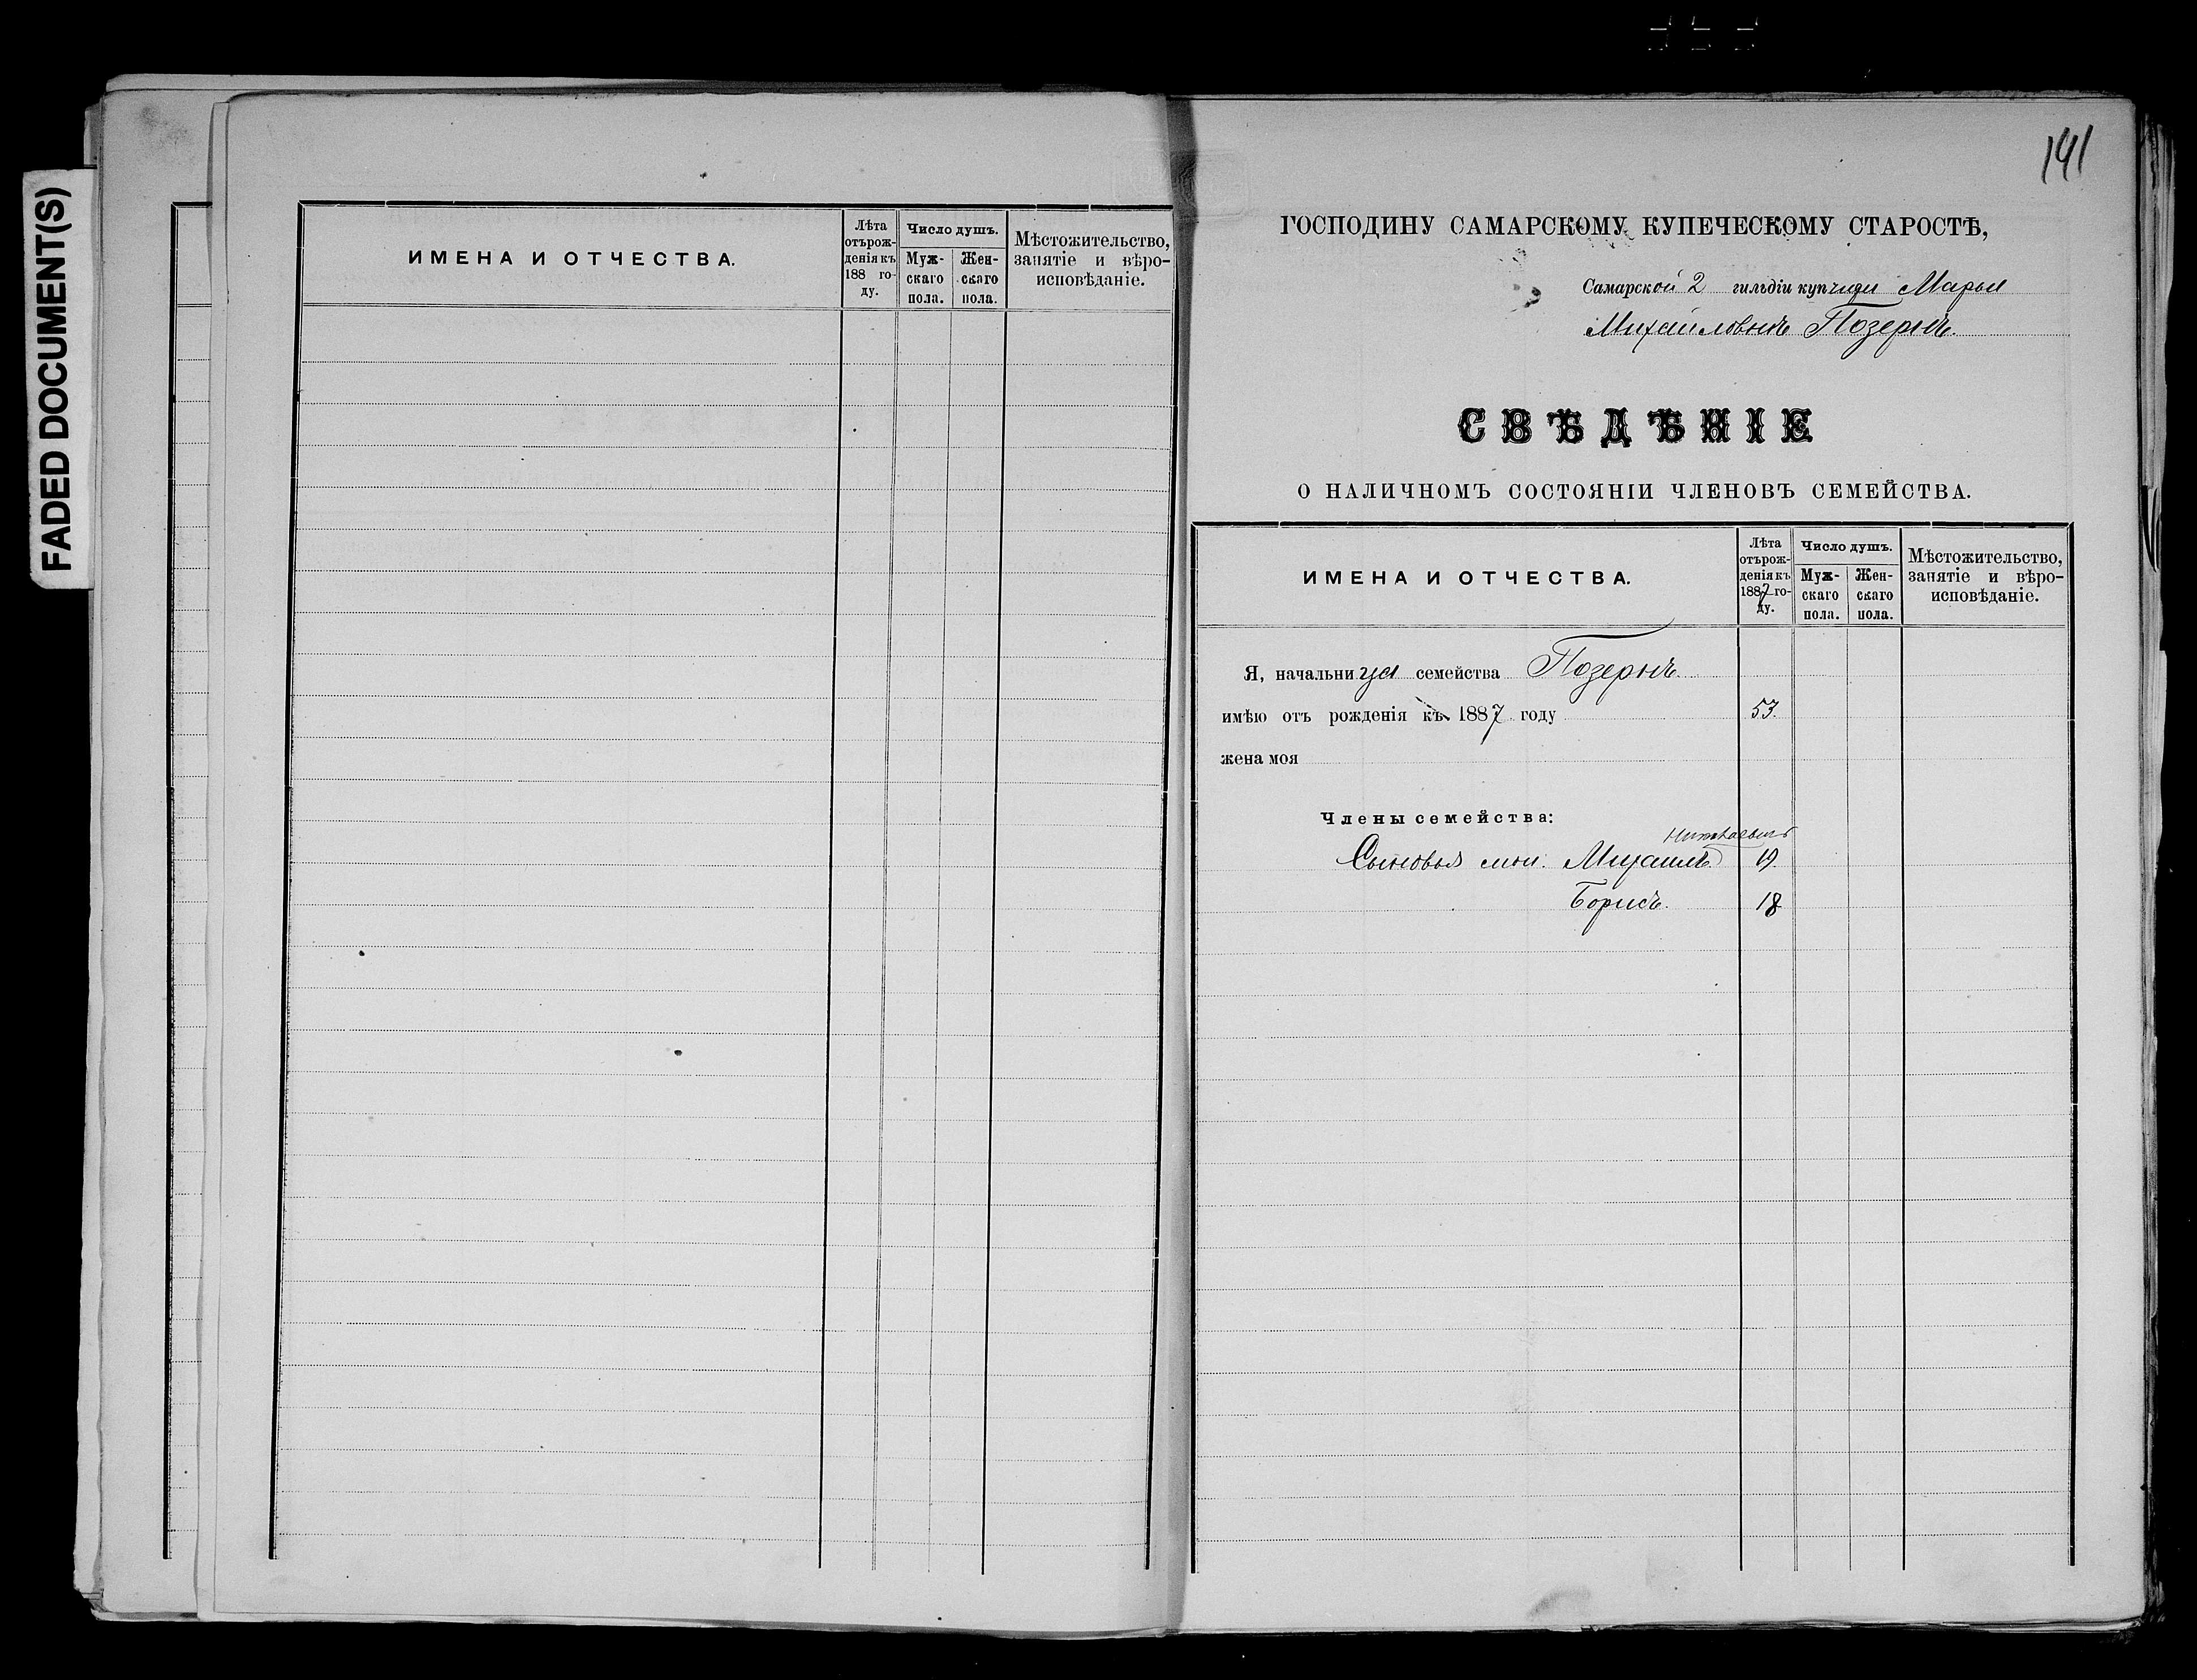 FADED DOCUMENT(S)
ИМЕНА И ОТЧЕСТВА.
Лѣта
отърож-
денія къ
188 го-
ду.
Число душъ.
Муж-
скаго
пола.
Жен-
скаго
пола.
Мѣстожительство,
занятіе и вѣро-
исповѣданіе.
141
ГОСПОДИНУ САМАРСКОМУ КУПЕЧЕСКОМУ СТАРОСТѢ,
Самарской 2 гильдіи купчихи Марьи
Михайловны Позернъ.
СВѢДѢНІЕ
О НАЛИЧНОМЪ СОСТОЯНІИ ЧЛЕНОВЪ СЕМЕЙСТВА.
ИМЕНА И ОТЧЕСТВА.
Лѣта
отърож-
денія къ
1887 го-
ду.
Число душъ.
Муж-
скаго
пола.
Жен-
скаго
пола.
Мѣстожительство,
занятіе и вѣро-
исповѣданіе.
Я, начальница семейства Позернъ.
имѣю отъ рожденія къ 1887 году 53.
жена моя
Члены семейства:
Сыновья мои. Михаилъ. 19.
Борисъ. 18